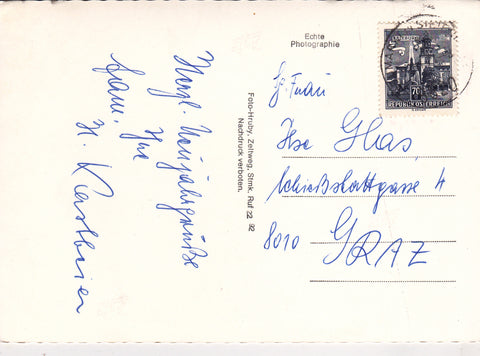 Herzl. Neujahrsgrüße
Ihre
Echte
Photographie
Foto-Hruby, Zeltweg, Stmk, Ruf 22 92
Nachdruck verboten.
REPUBLIK ÖSTERREICH
70
Frau
Ilse Glas,
Schießstattgasse 4
8010 GRAZ